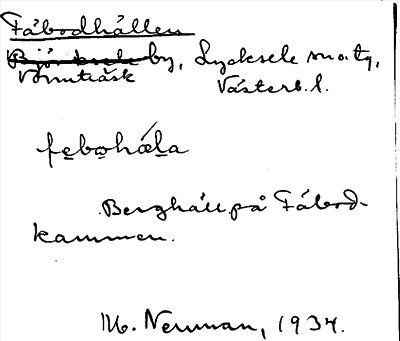 Fäbodhällen
Björksele by, Lycksele sn o. tg,
Vormträsk Västerb. l.
febohæ̀la
Berghäll på Fäbod-
kammen.
M. Nenman, 1934.